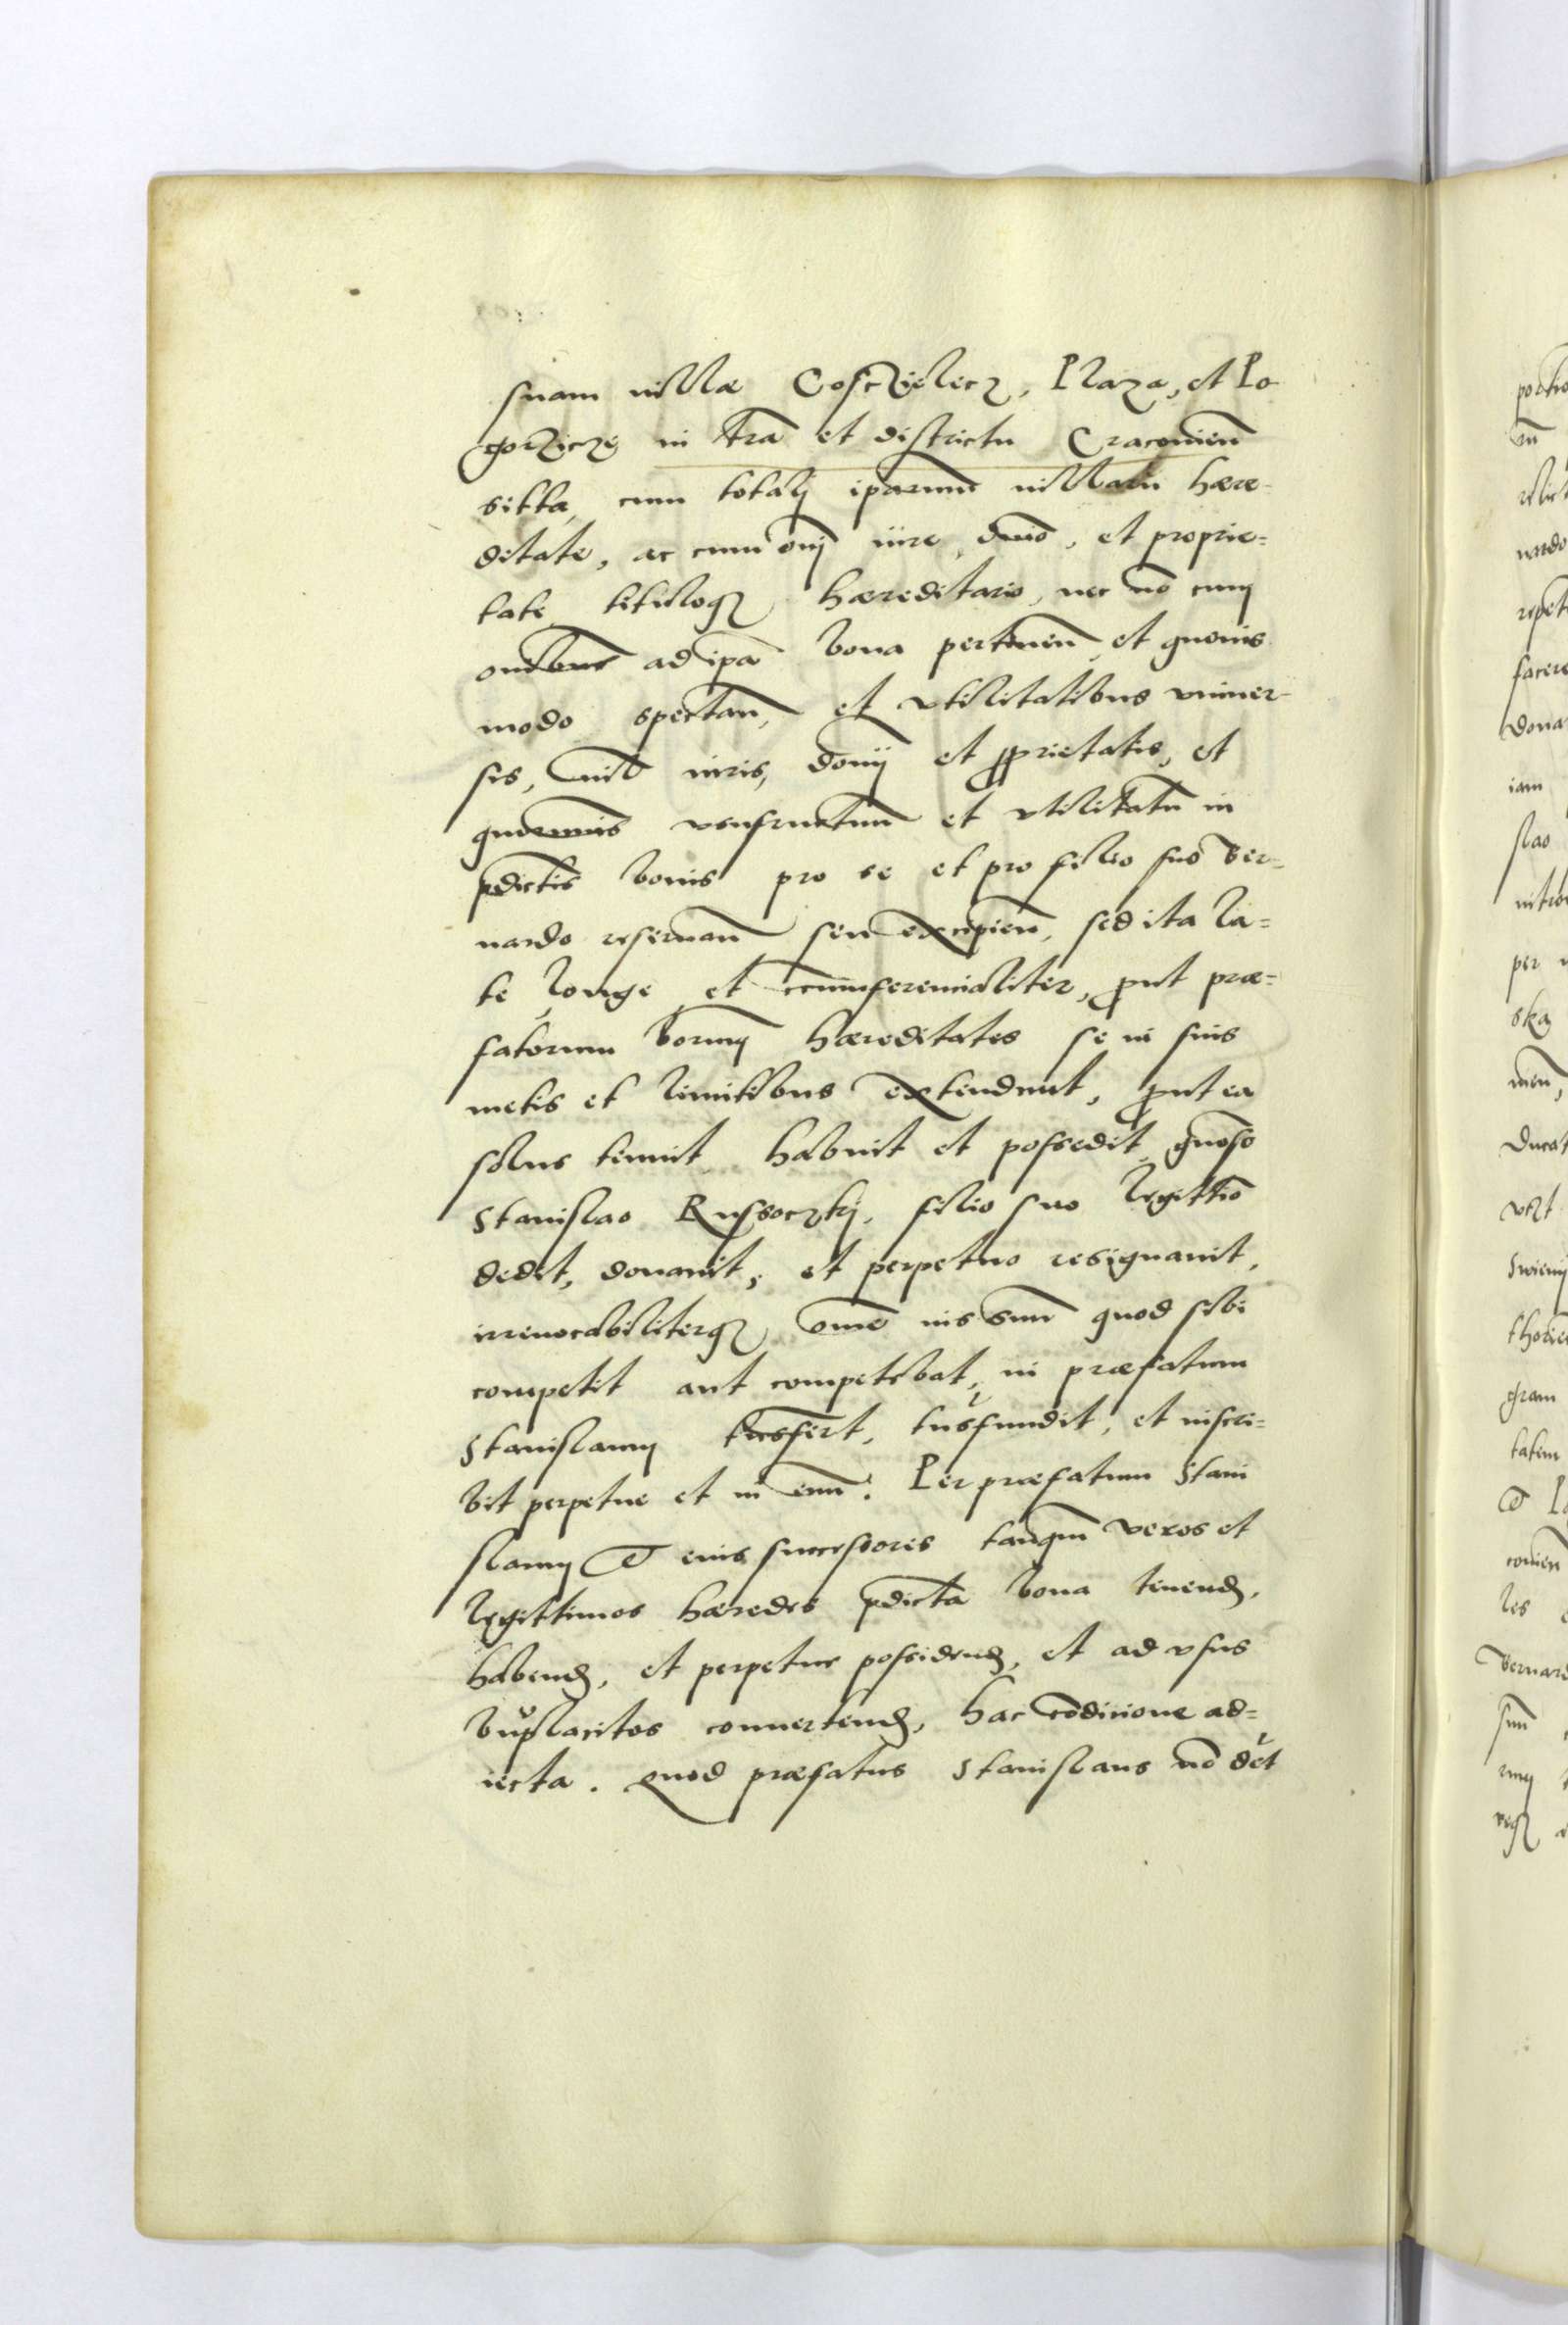 suam villæ Cosczielecz, Plaza, et Po
gorzicze in tra et districtu Cracouien
sitta, cum totalj iparum villaru hære-
ditate, ac cum onj iure, dnio, et proprie=
tate tituloq hæreditario, nec no cum
onibus ad ipa bona pertinen, et quouis
modo spectan, et vtilitatibus vniuer-
sis, nil iuris, donij et pprietatis, et
quoruuis vsufructuu et vtilitatu in
pdictis bonis pro se et pro filio suo Ber=
nardo reseruan seu excipien, sed ita la=
te longe et circumferencialiter, put præ=
fatorum bonorum hæreditates se in suis
metis et limitibus extendunt, put ea
solus tenuit habuit et possedit, gnoso
Stanislao Russoczkj, filio suo legittio
dedit, donauit, et perpetuo resignauit,
irreuocabiliterq ome ius suu quod sibi
competit aut competebat, in præfatum
Stanislaum trasfert, trasfundit, et inscri=
bit perpetue et in euu. Per præfatum Stani
slaum & eius successores tanqm veros et
legittimos hæredes pdicta bona tenend,
habend, et perpetue possidend, et ad vsus
bnplacitos conuertend, hac condicione ad=
iecta. Quod præfatus Stanislaus no det